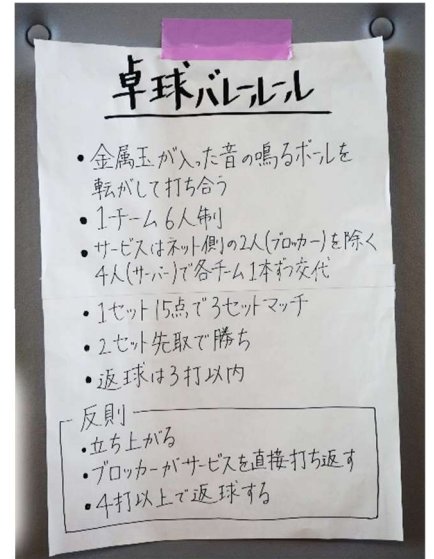 卓球バレールール
・金属玉が入った音の鳴るボールを
転がして打ち合う
・1チーム6人制
・サービスはネット側の2人(ブロッカー)を除く
4人(サーバー)で各チーム1本ずつ交代
・1セット15点で3セットマッチ
・2セット先取で勝ち
・返球は3打以内
反則
・立ち上がる
・ブロッカーがサービスを直接打ち返す
・4打以上で返球する